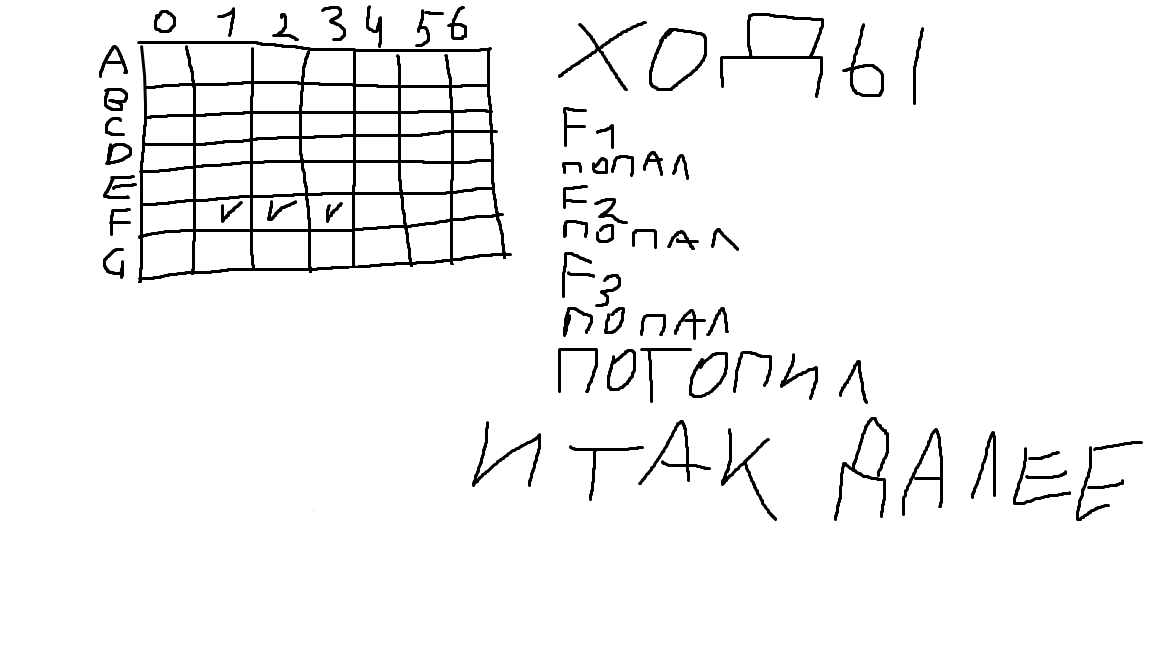 0 1 2 3 4 5 6
A
B
C
D
E
F
G
ХОДЫ
F1
ПОПАЛ
F2
ПОПАЛ
F3
ПОПАЛ
ПОТОПИЛ
И ТАК ДАЛЕЕ